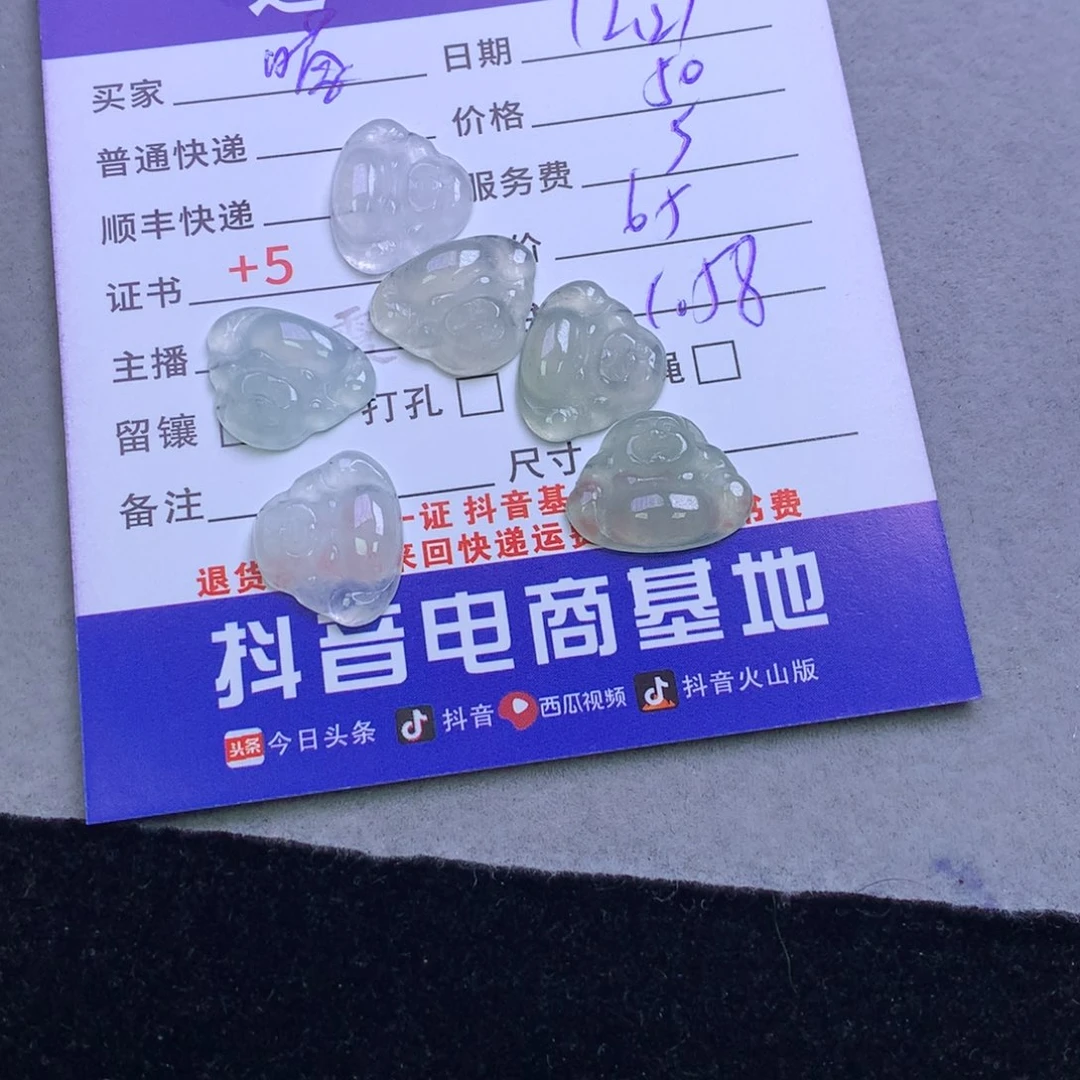 买家 日期 1221
普通快递 价格 50
顺丰快递 服务费 5
证书 +5 价 65
主播 1.058
留镶 打孔 绳
备注 尺寸
一证 抖音基 书费
退货 来回快递运费
抖音电商基地
头条 今日头条 抖音 西瓜视频 抖音火山版